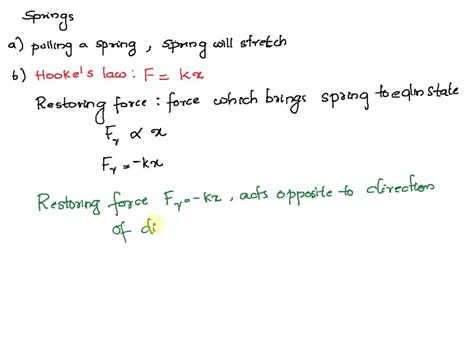 Springs
a) pulling a spring, spring will stretch
b) Hooke's law: F = kx
Restoring force: force which brings spring to eqlm state
Fγ ∝ x
Fγ = -kx
Restoring force Fγ = -kx, acts opposite to direction
of di